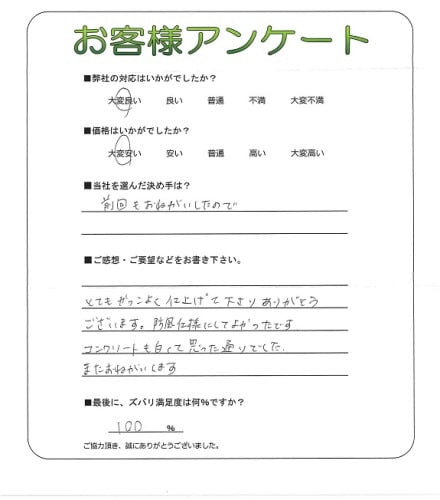 お客様アンケート
■弊社の対応はいかがでしたか？
大変良い 良い 普通 不満 大変不満
■価格はいかがでしたか？
大変安い 安い 普通 高い 大変高い
■当社を選んだ決め手は？
前回もおねがいしたので
■ご感想・ご要望などをお書き下さい。
とてもかっこよく仕上げて下さりありがとう
ございます。防風仕様にしてよかったです
コンクリートも白くて思った通りでした.
またおねがいします
■最後に、ズバリ満足度は何％ですか？
100 ％
ご協力頂き、誠にありがとうございました。